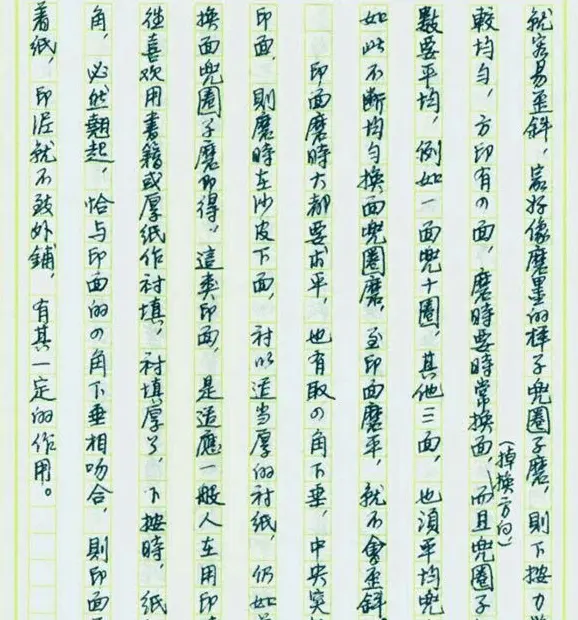 就容易歪斜，最好像磨墨的样子兜圈子磨，則下按力
較均匀，方印有の面，磨時要時常換面，（掉換方向）而且兜圈子
數要平均，例如一面兜十圈，其他三面，也須平均兜
如此不断均匀換面兜圈磨，至印面磨平，就不會歪斜。
印面磨時大都要求平，也有取の角下垂，中央突
印面，則磨時在沙皮下面，衬以适当厚的衬紙，仍如
換面兜圈子磨即得。這类印面，是适應一般人在用印
往喜欢用書籍或厚紙作衬填，衬填厚了，下按時，紙
角，必然翹起，恰与印面的の角下垂相吻合，則印面
着紙，印泥就不致外鋪，有其一定的作用。